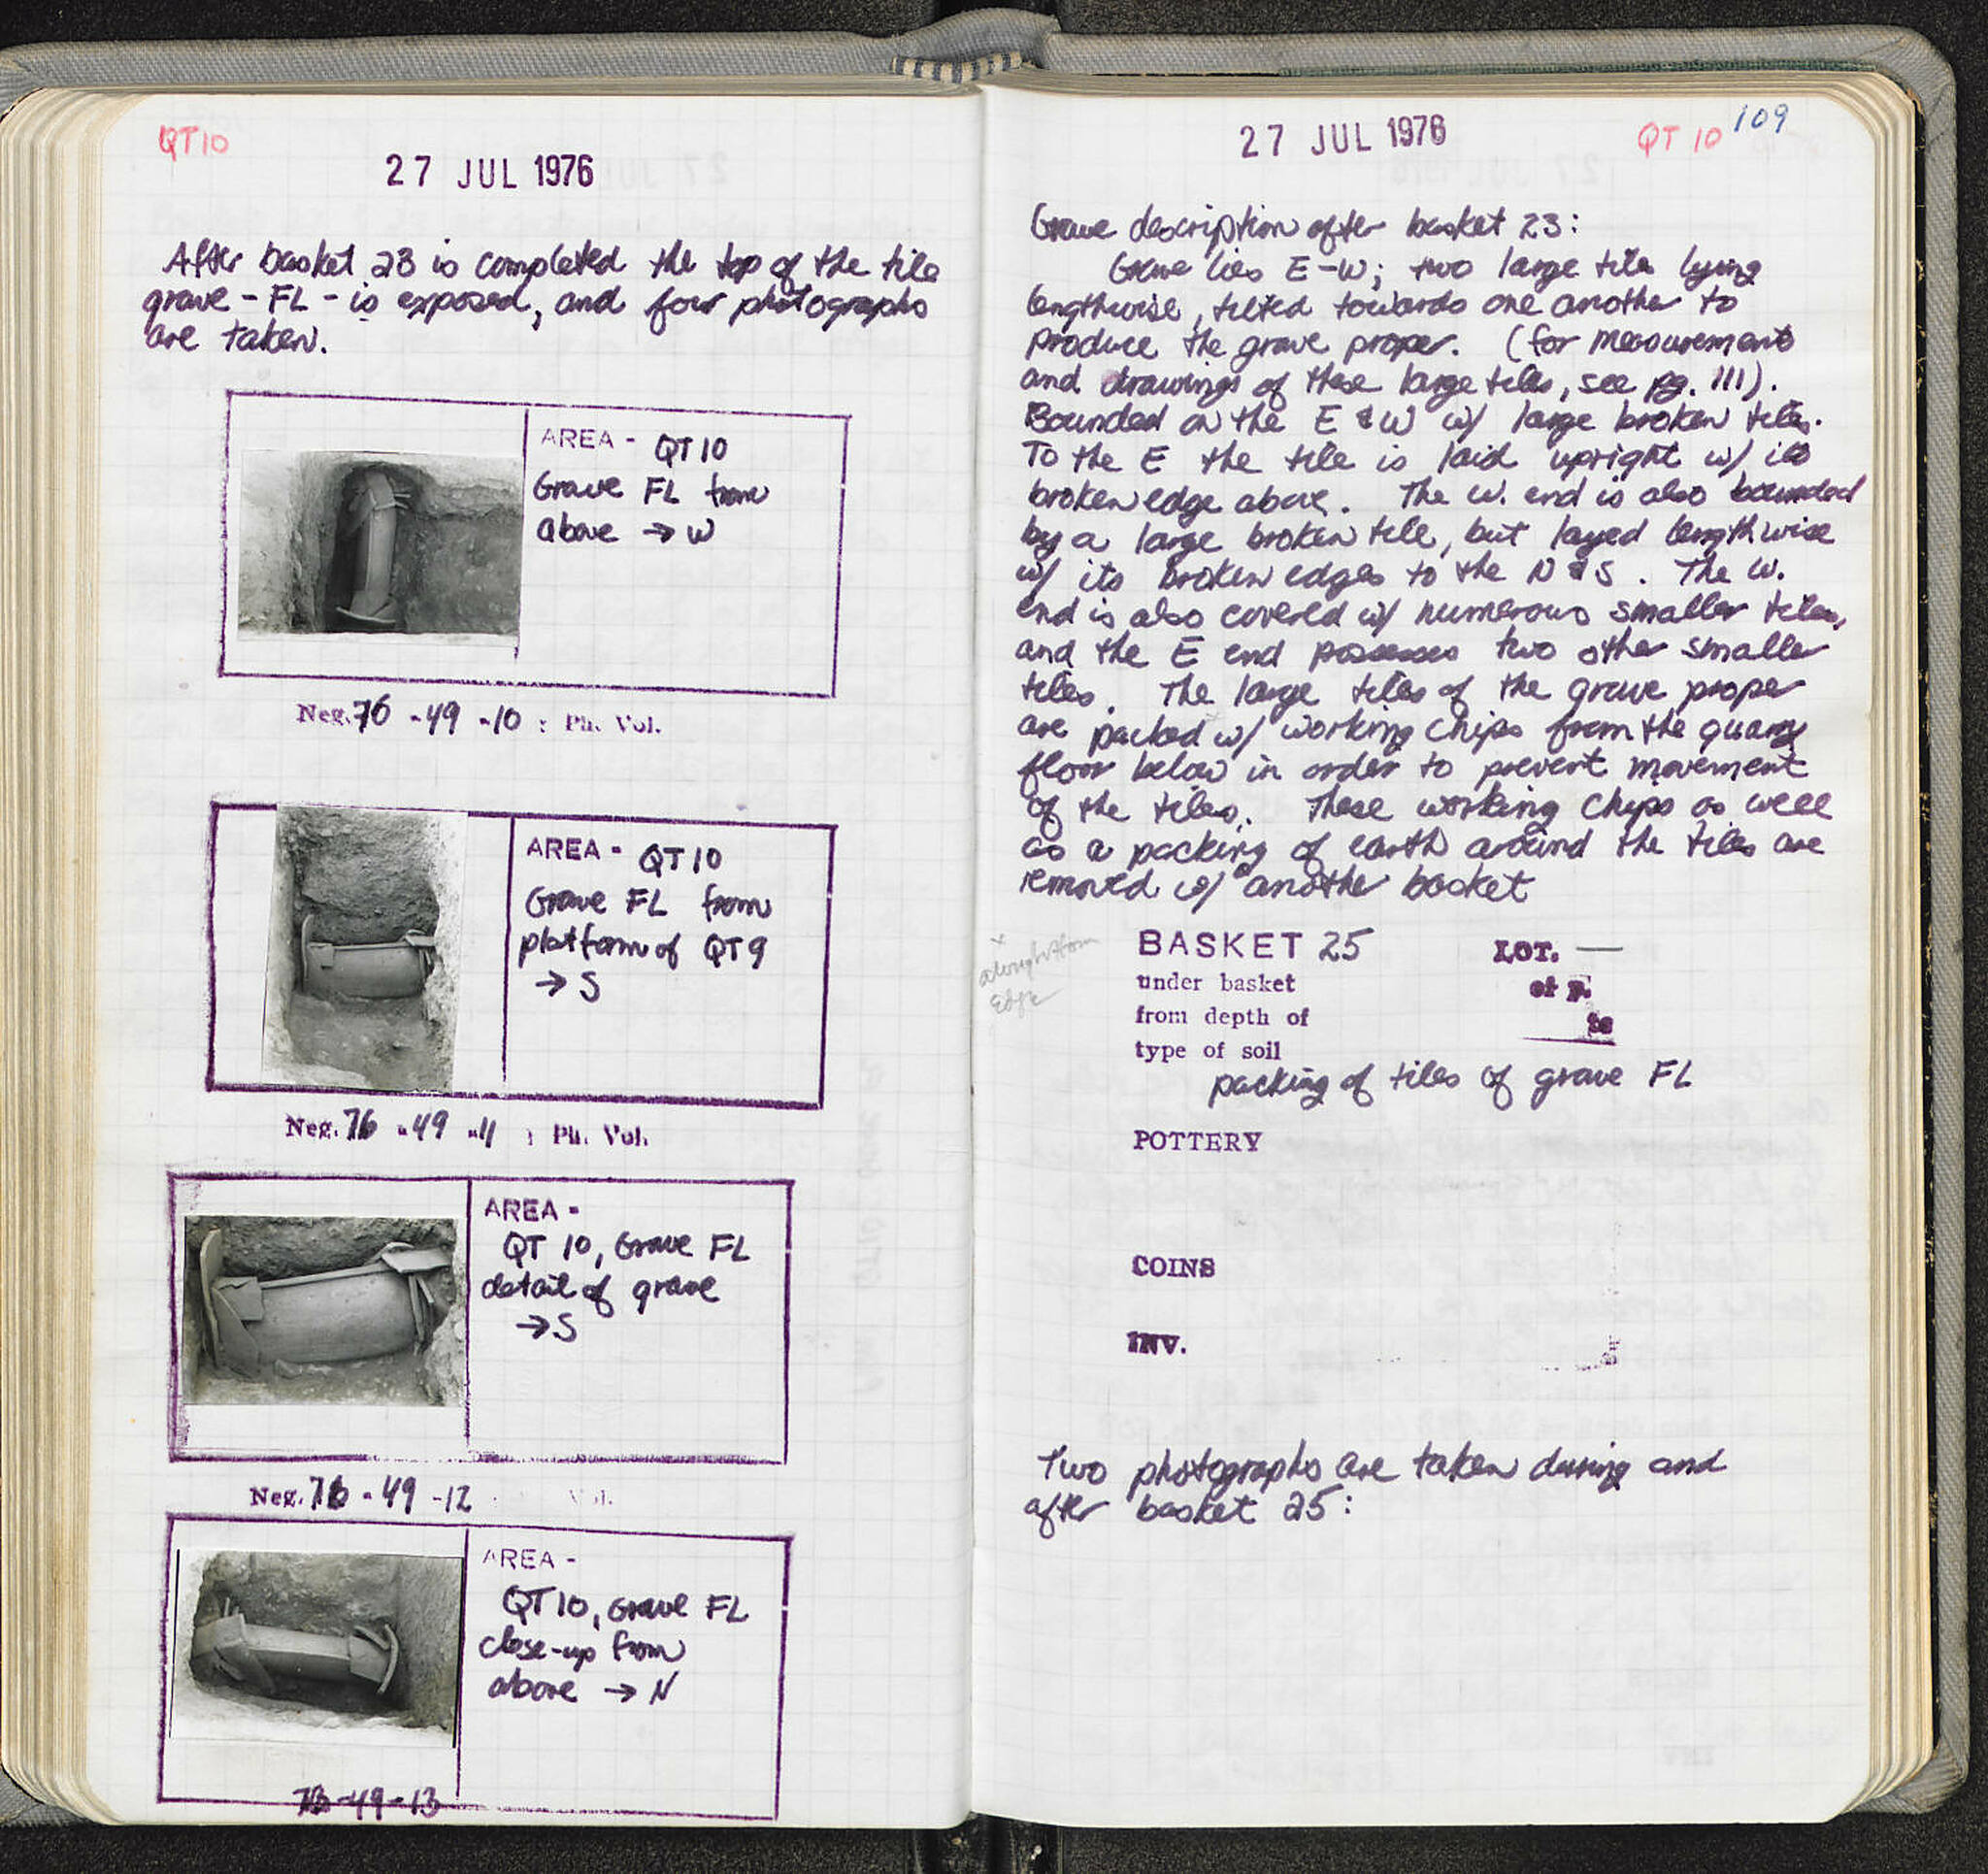 QT10
27 JUL 1976
After basket 23 is completed the top of the tile
grave - FL - is exposed, and four photographs
are taken.
AREA - QT10
Grave FL from
above → W
Neg. 76 - 49 - 10 : Ph. Vol.
AREA - QT10
Grave FL from
platform of QT9
→ S
Neg. 76 - 49 - 11 ; Ph. Vol.
AREA -
QT 10, Grave FL
detail of grave
→ S
Neg. 76 - 49 - 12 Vol.
AREA -
QT10, Grave FL
close-up from
above → N
76-49-13
27 JUL 1976
QT 10 109
Grave description after basket 23:
Grave lies E-W; two large tiles lying
lengthwise, tilted towards one another to
produce the grave proper. (for measurements
and drawings of these large tiles, see pg. 111).
Bounded on the E & W w/ large broken tiles.
To the E the tile is laid upright w/ its
broken edge above. The W. end is also bounded
by a large broken tile, but layed lengthwise
w/ its broken edges to the N & S. The W.
end is also covered w/ numerous smaller tiles,
and the E end possesses two other smaller
tiles. The large tiles of the grave proper
are packed w/ working chips from the quarry
floor below in order to prevent movement
of the tiles. These working chips as well
as a packing of earth around the tiles are
removed w/ another basket
BASKET 25 LOT. —
under basket of p.
from depth of to
type of soil
packing of tiles of grave FL
POTTERY
COINS
INV.
Two photographs are taken during and
after basket 25: